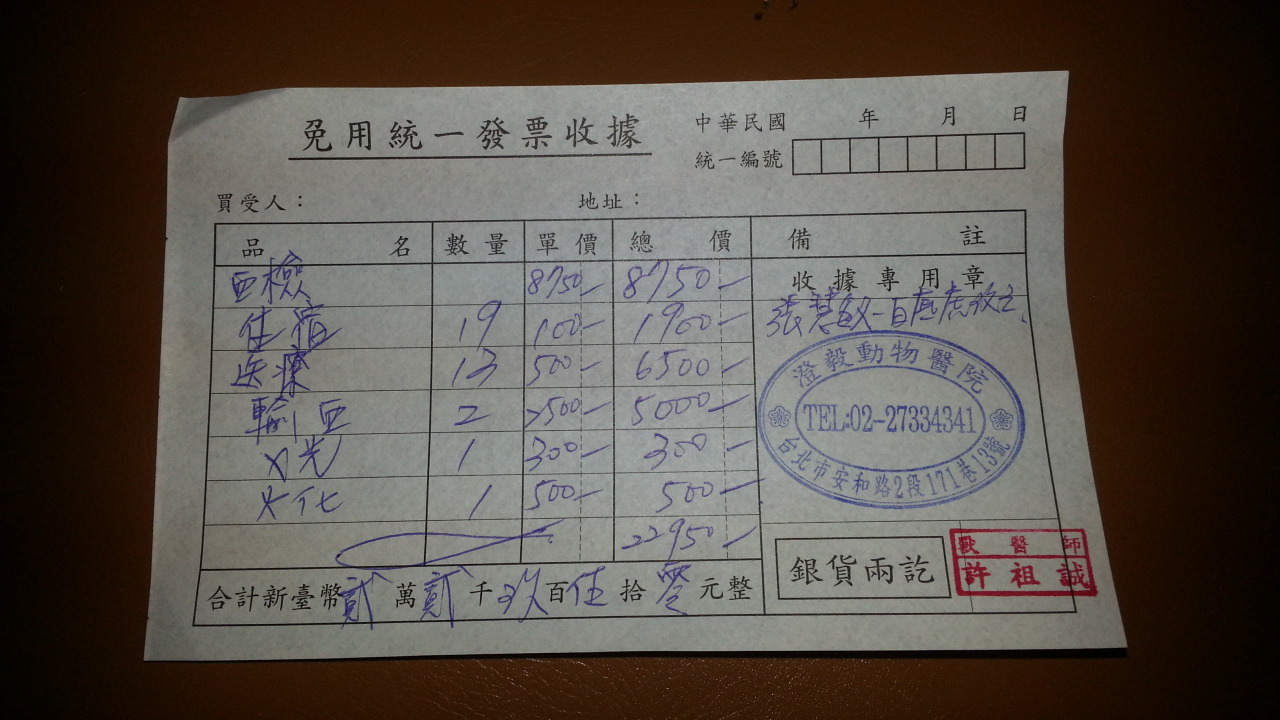 免用統一發票收據
中華民國 年 月 日
統一編號
買受人：
地址：
品名 數量 單價 總價 備註
血檢 8750- 8750-
收據專用章
住宿 19 100- 1900-
張慧敏-
医療 13 500- 6500-
輸血 2 2500- 5000-
X光 1 300- 300-
火化 1 500- 500-
22950-
澄毅動物醫院
TEL:02-27334341
台北市安和路2段171巷13號
合計新臺幣貳萬貳千玖百伍拾零元整
銀貨兩訖
獸醫師
許祖誠